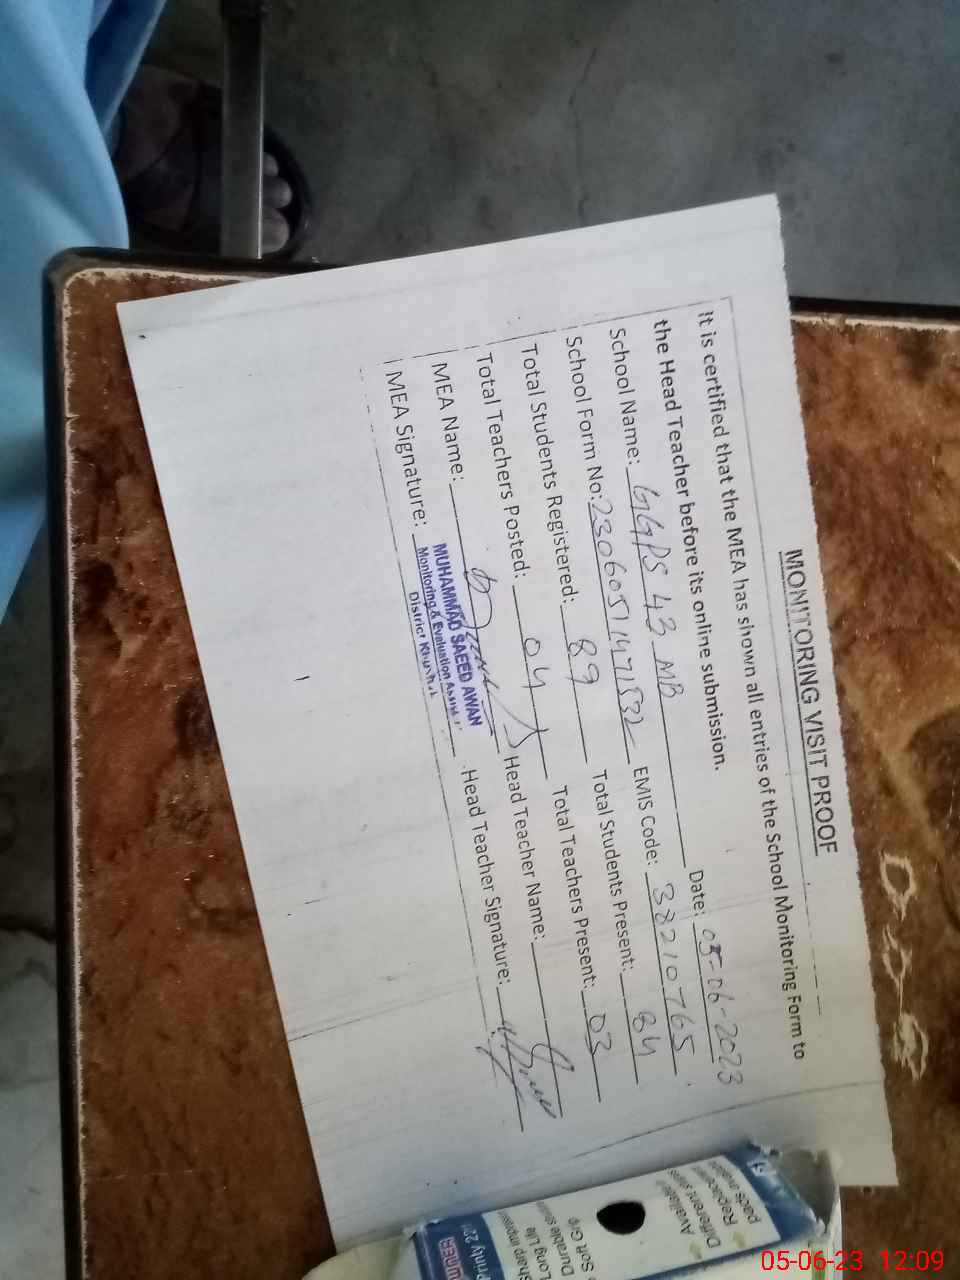 MONITORING VISIT PROOF
It is certified that the MEA has shown all entries of the School Monitoring Form to
the Head Teacher before its online submission.
School Name: GGPS 43 MB Date: 05-06-2023
School Form No: EMIS Code: 38210765
Total Students Registered: 89 Total Students Present: 84
Total Teachers Posted: 04 Total Teachers Present: 03
MEA Name: Head Teacher Name:
MEA Signature: Head Teacher Signature:
MUHAMMAD SAEED AWAN
Monitoring & Evaluation
District
Available
Different
pads
Soft Grip
Durable
Long Life
05-06-23 12:09